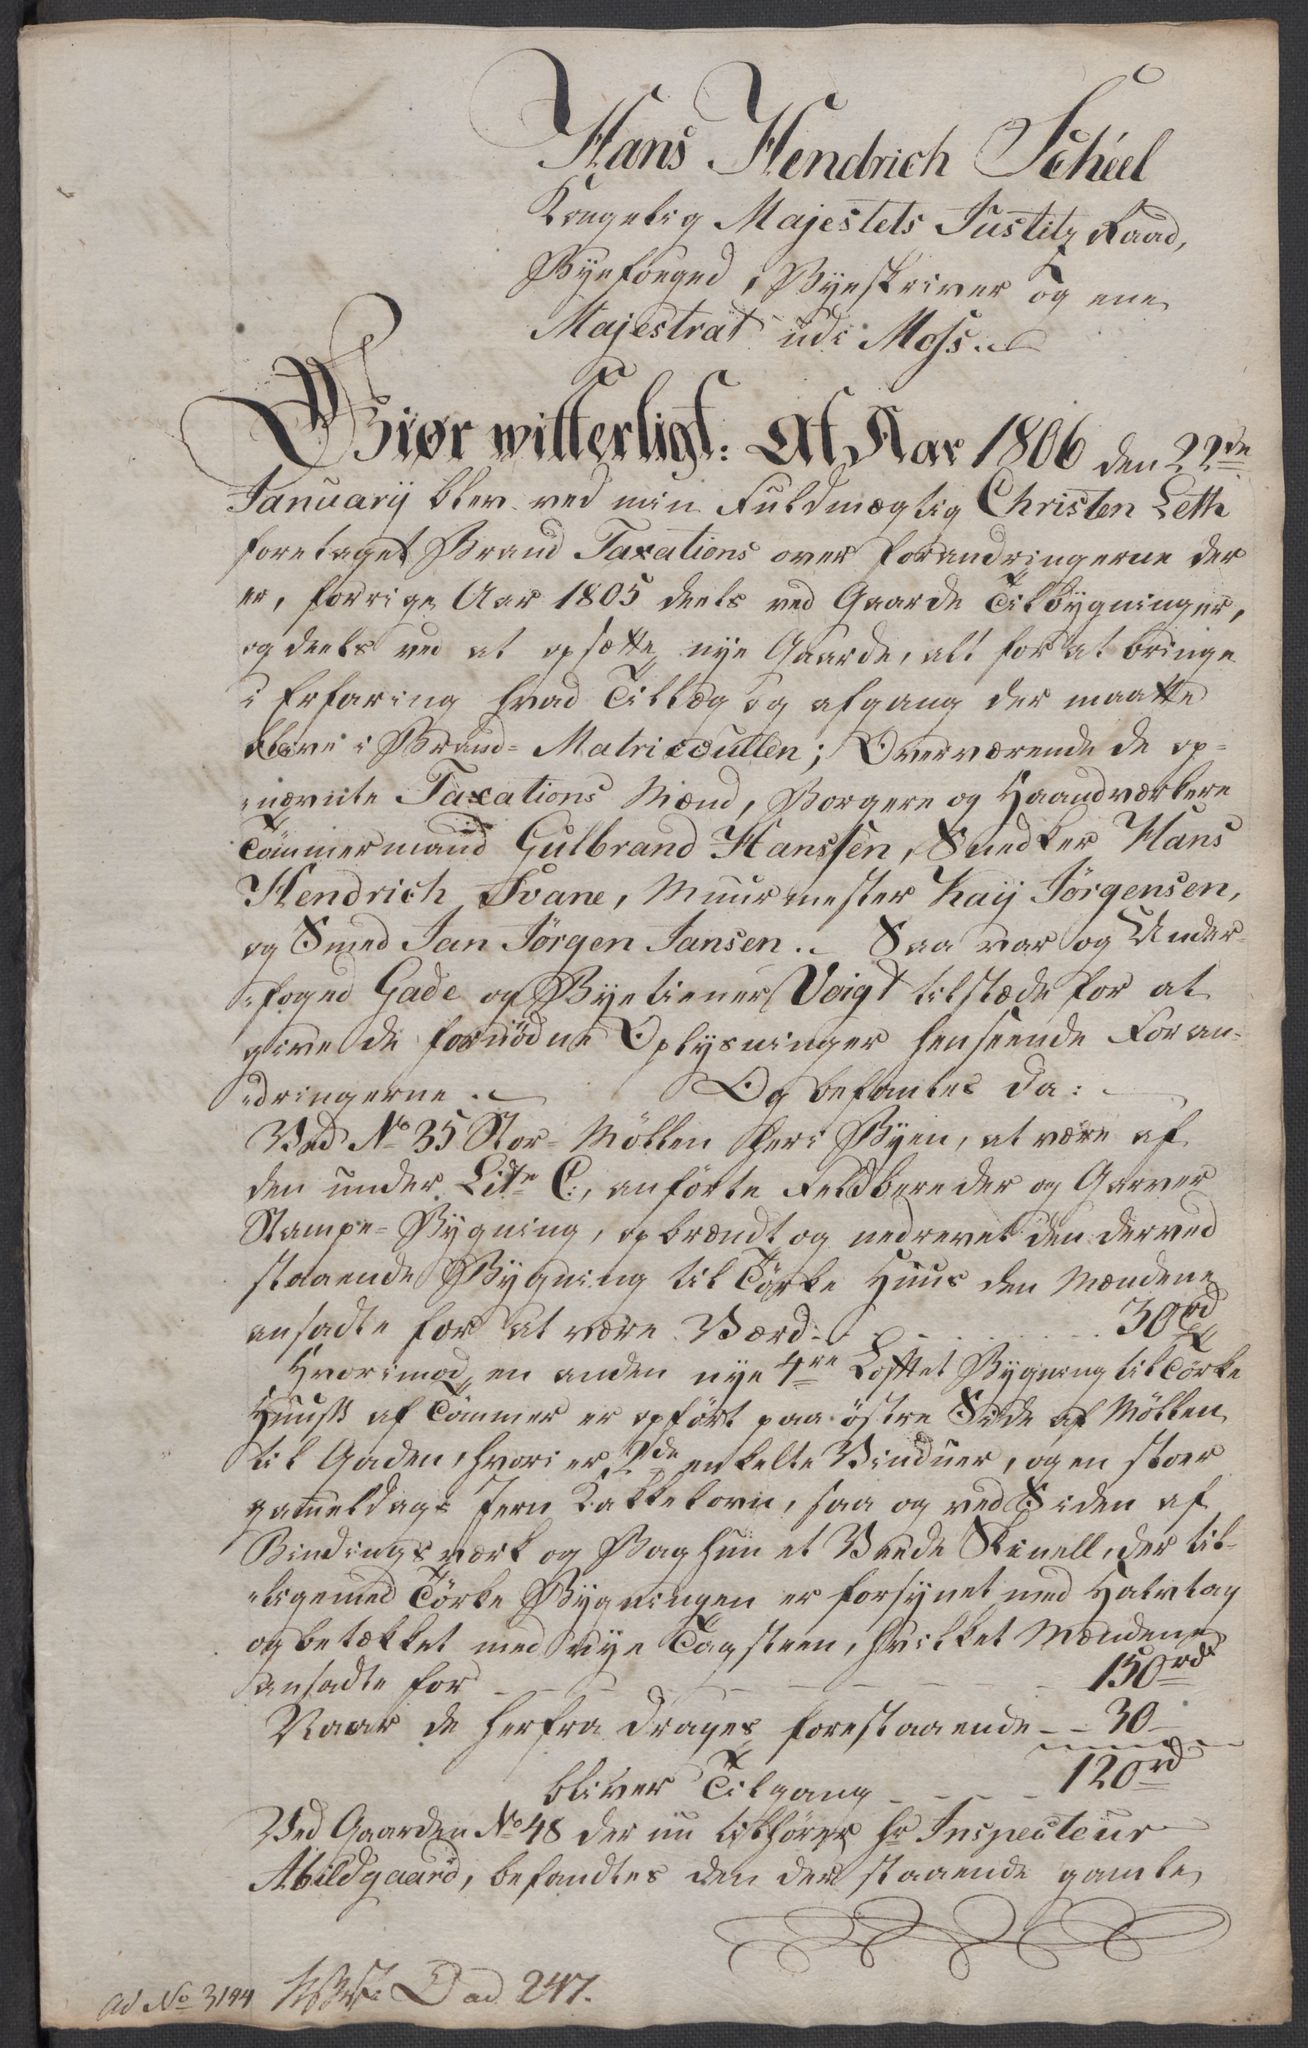 Hans Hendrich Scheel
Kongelig Majestets Justitz Raad,
Byefoeged, Byeskriver og ene
Majestrat udi Moss.
Giør witterligt: At Aar 1806 den 22de
Januarij blev ved min Fuldmægtig Christen Leth
foretaget Brand Taxations over forandringerne der
er, forrige Aar 1805 deels ved Gaarde Tilbygninger,
og deels ved at opsætte nye Gaarde, alt for at bringe
i Erfaring hvad Tillæg og afgang der maatte
blive i Brand-Matricculen; Overværende de op-
nævnte Taxations Mænd, Borgere og Haandværkere
Tömmermand Gulbrand Hanssen, Snedker Hans
Hendrich Svane, Muurmester Kaij Jørgensen,
og Smed Jan Jørgen Jansen. Saa var og Under-
foged Gade og Byetiener Voigt tilstæde for at
give de fornödne Oplysninger henseende Foran-
dringerne. Og befantes da:
Ved No 35 Stor-Möllen her i Byen, at være af
den under Litr C:, anförte Feldbereder og Garver
Stampe-Bygning, opbrændt og nedrevet den derved
staaende Bygning til Törke Huus den Mændene
ansadte for at være Værd . . . 30rd
Hvorimod en anden nye 4re Lofftet Bygning til Törke
Huus af Tömmer er opfört paa östre Side af Möllen
til Gaden, hvori er 2de enkelte Vinduer, og en stoer
gammeldags Jern Kakkelovn, saa og ved Siden af
Bindingsværk og Baghun et Veede Skuell, der til-
ligemed Törke Bygningen er forsynet med Halvtag
og betækket med nye Tagsteen, hvilket Mændene
ansadte for - - - 150rd
Naar de herfra drages forestaaende - - 30
bliver Tilgang - - - 120rd
Ved Gaarden No 48 der nu tilhører Hr Inspecteur
Abildgaard, befandtes den der staaende gamle
ad No 3144
D ad 247.